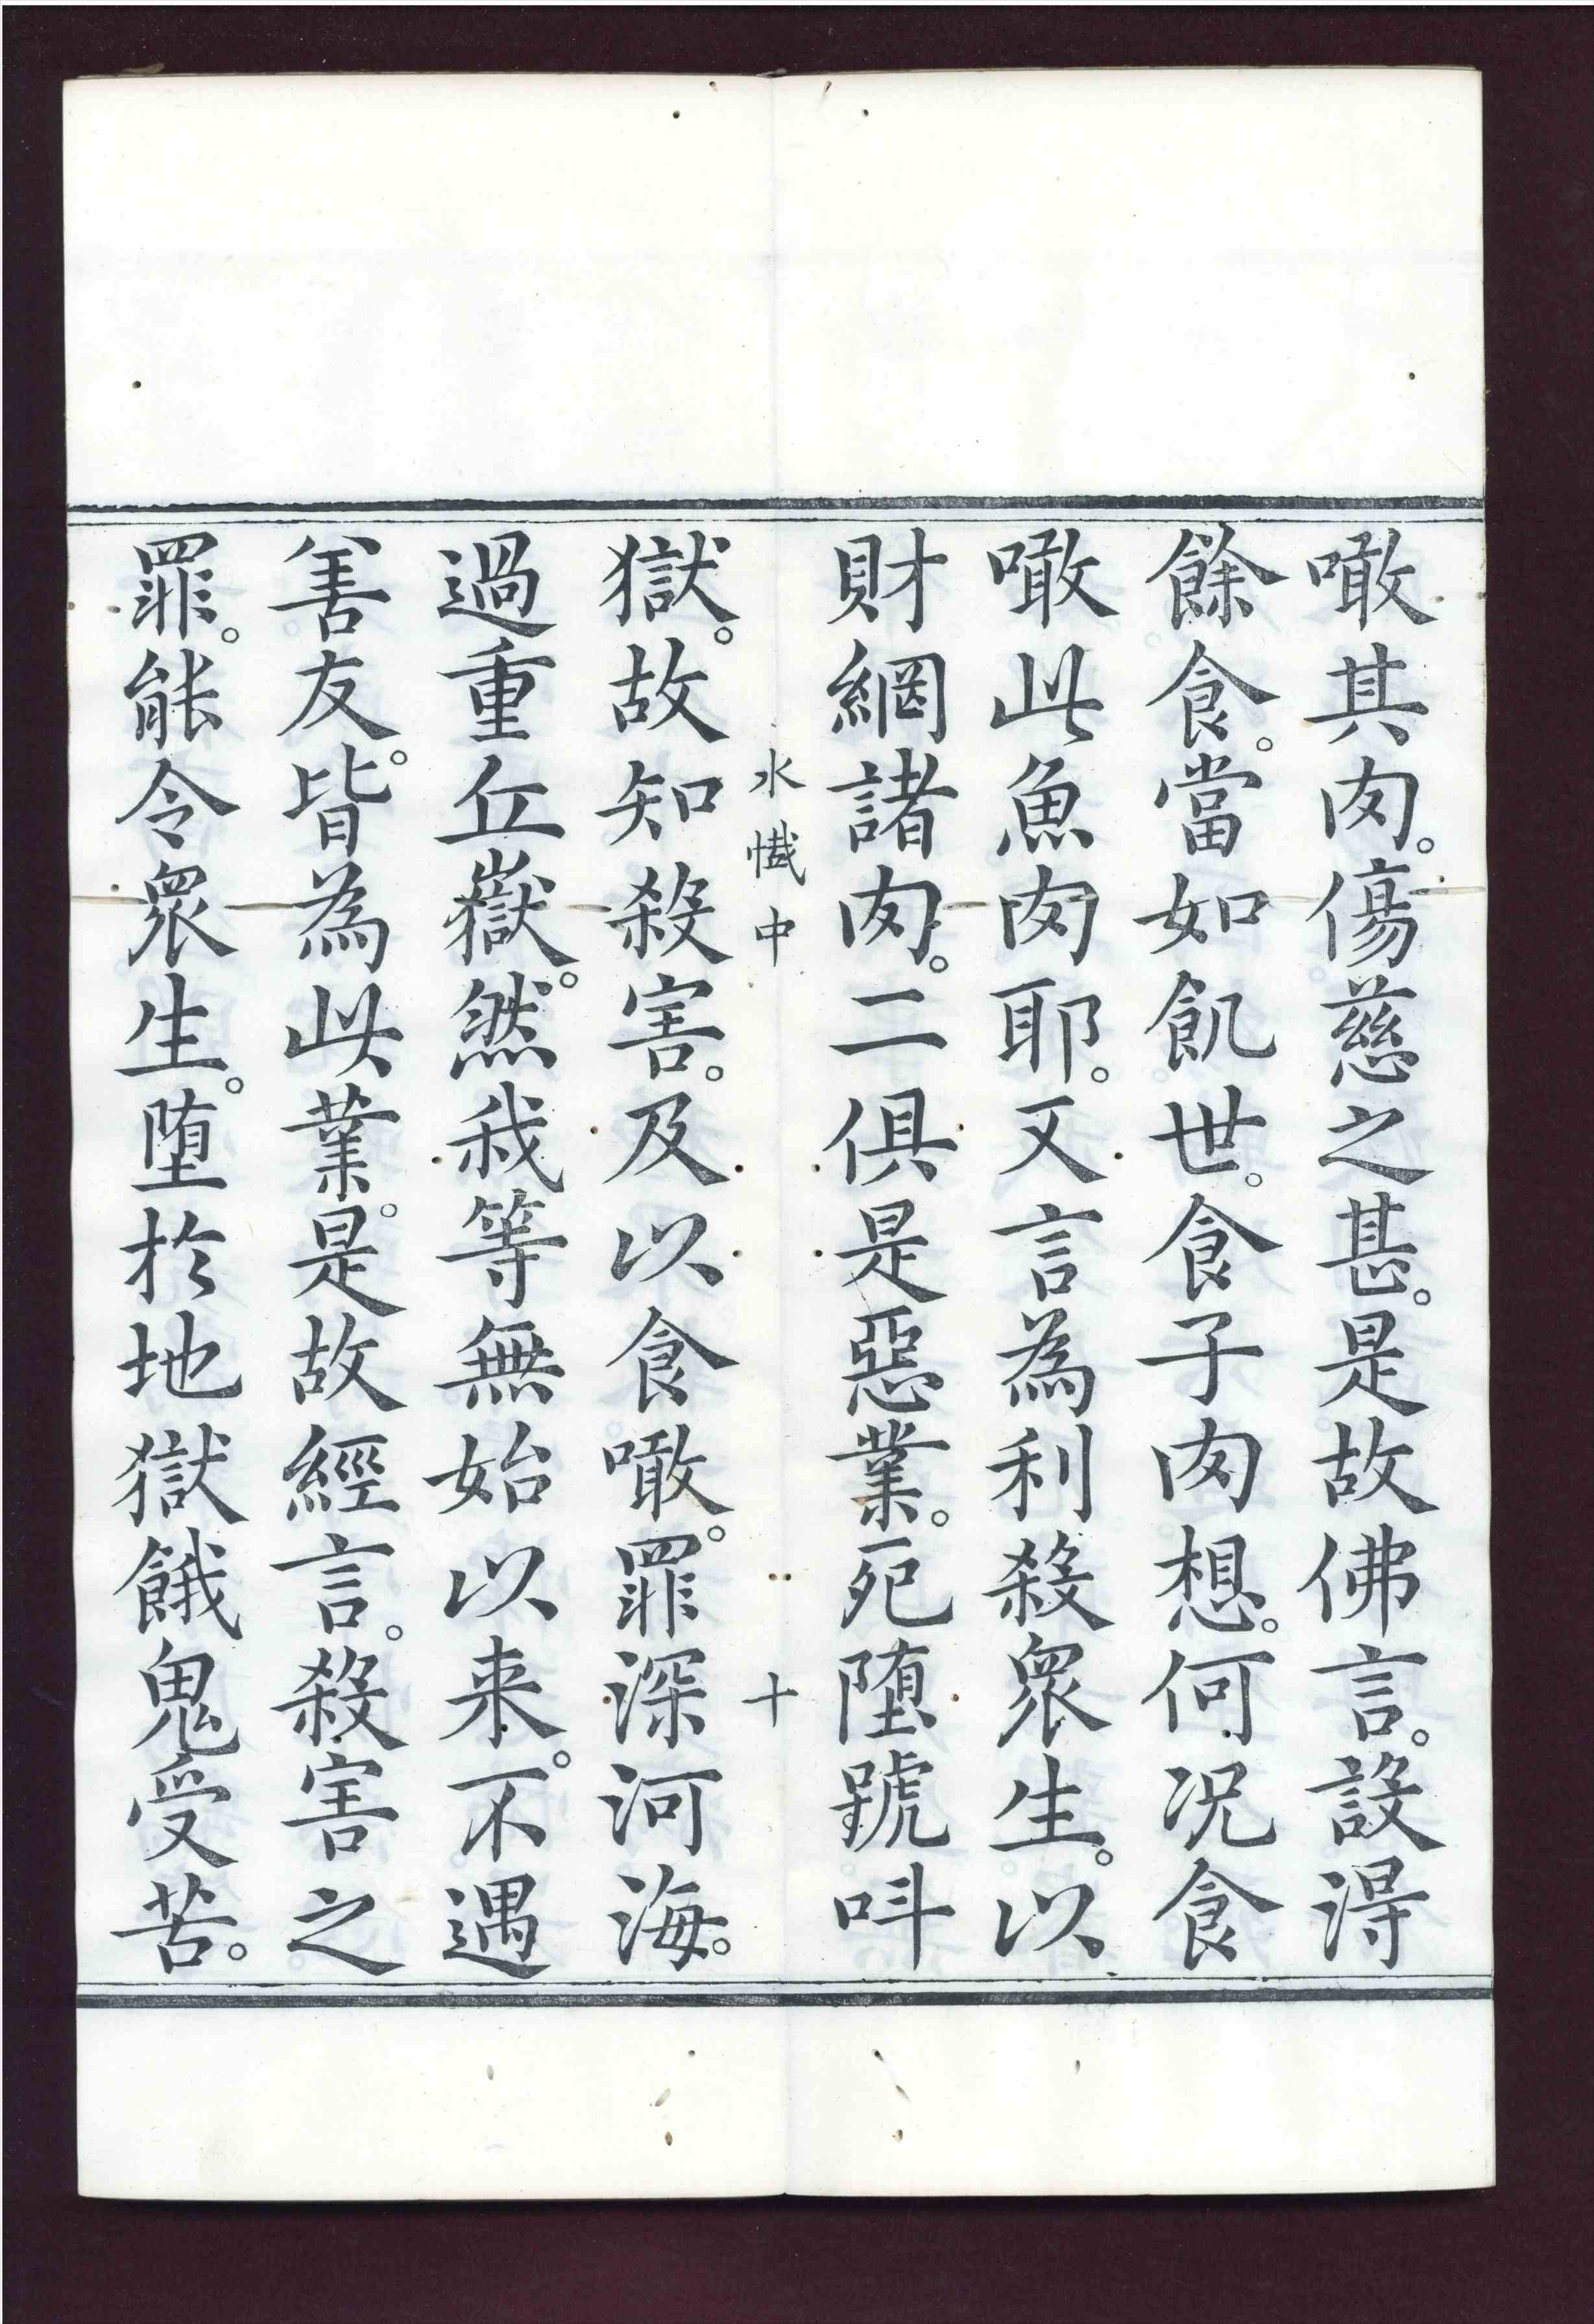 噉其肉。傷慈之甚。是故佛言。設得
餘食。當如飢世。食子肉想。何况食
噉此魚肉耶。又言為利殺眾生。以
財網諸肉。二俱是惡業。死墮號呌
水懺中 十
獄。故知殺害。及以食噉。罪深河海。
過重丘嶽。然我等無始以来。不遇
善友。皆為此業。是故經言。殺害之
罪。能令眾生。墮於地獄餓鬼受苦。